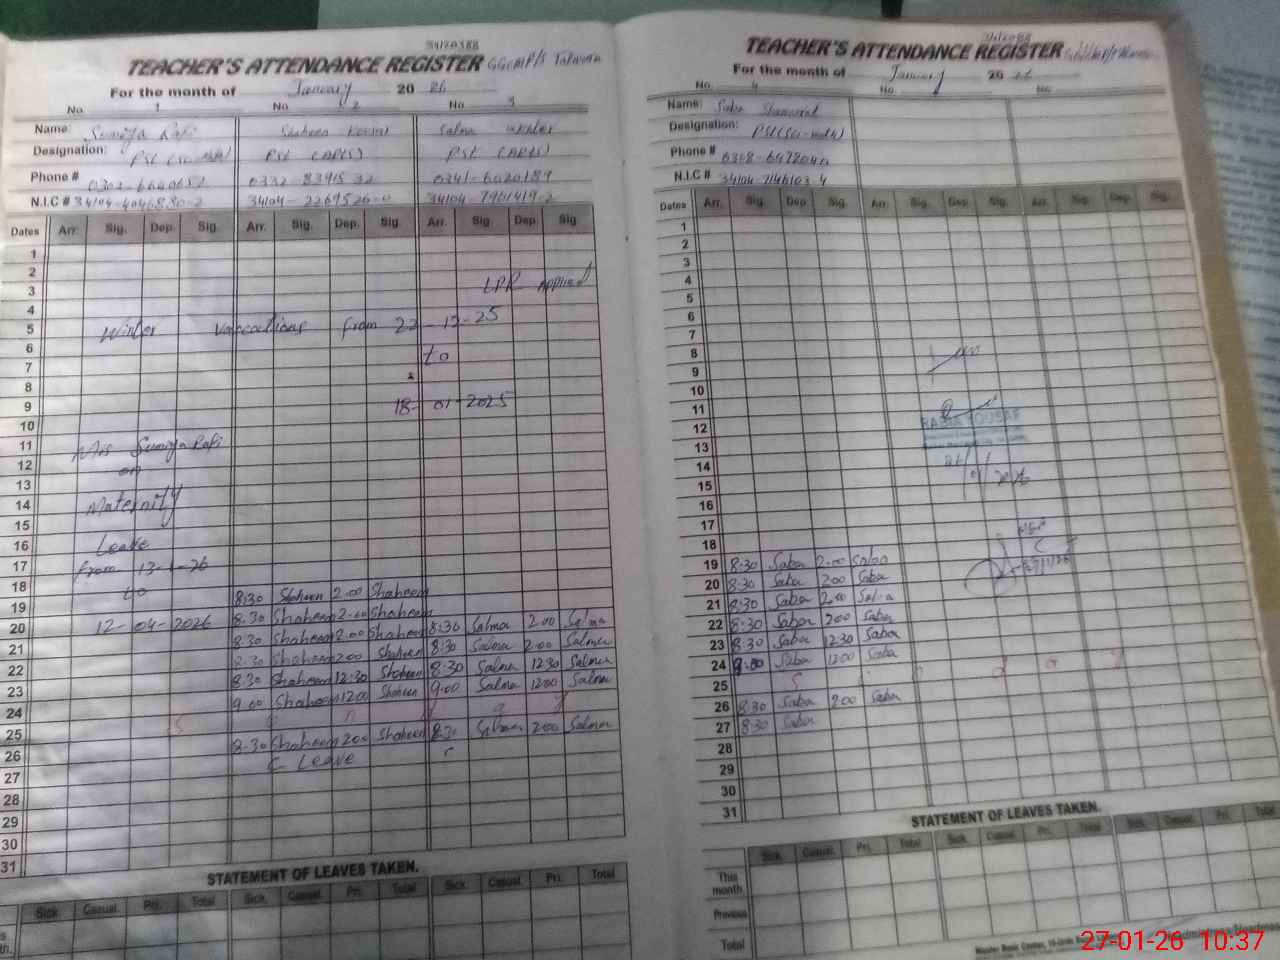 34120388
TEACHER'S ATTENDANCE REGISTER GGCMP/S
For the month of January 2026
No. 1 No. 2 No. 3
Name: Sumiya Rafi Shaheen Salma
Designation: PST (Sci-Math) PST (ARTS) PST (ARTS)
Phone # 0332-8391532 0341-6020189
N.I.C # 34104-4046880-2 34104-2269520-0 34104-7961419-2
Dates Arr. Sig. Dep. Sig. Arr. Sig. Dep. Sig. Arr. Sig. Dep Sig.
1
2
3 LPR Applied
4
5 Winter Vaccations from 22-12-25
6
7 to
8
9 18-01-2025
10
11 Mrs Sumiya Rafi
12 on
13
14 Maternity
15
16 Leave
17 from 13-1-26
18 to
19 8:30 Shaheen 2:00 Shaheen
20 12-04-2026 8:30 Shaheen 2:00 Shaheen 8:30 Salma 2:00 Salma
21 8:30 Shaheen 2:00 Shaheen 8:30 Salma 2:00 Salma
22 8:30 Shaheen 2:00 Shaheen 8:30 Salma 12:30 Salma
23 8:30 Shaheen 12:30 Shaheen 9:00 Salma 12:00 Salma
24 9:00 Shaheen 12:00 Shaheen
25 S u n d a y
26 8:30 Shaheen 2:00 Shaheen 8:30 Salma 2:00 Salma
27 C Leave
28
29
30
31
STATEMENT OF LEAVES TAKEN.
Sick. Casual. Pri. Total Sick. Casual. Pri. Total Sick. Casual. Pri. Total
TEACHER'S ATTENDANCE REGISTER
For the month of January 2026
No. 4 No. No.
Name: Saba
Designation: PST (Sci-Math)
Phone #
N.I.C # 34104-7146103-4
Dates Arr. Sig. Dep. Sig. Arr. Sig. Dep. Sig. Arr. Sig. Dep. Sig.
1
2
3
4
5
6
7
8
9
10
11
12 RABIA YOUSAF
13
14
15
16
17
18
19 8:30 Saba 2:00 Saba
20 8:30 Saba 2:00 Saba
21 8:30 Saba 2:00 Saba
22 8:30 Saba 2:00 Saba
23 8:30 Saba 12:30 Saba
24 9:00 Saba 12:00 Saba
25 S u n d a y
26 8:30 Saba 2:00 Saba
27 8:30 Saba
28
29
30
31
STATEMENT OF LEAVES TAKEN.
Sick. Casual. Pri. Total Sick. Casual. Pri. Total Sick. Casual. Pri. Total
This month
Previous
Total
27-01-26 10:37